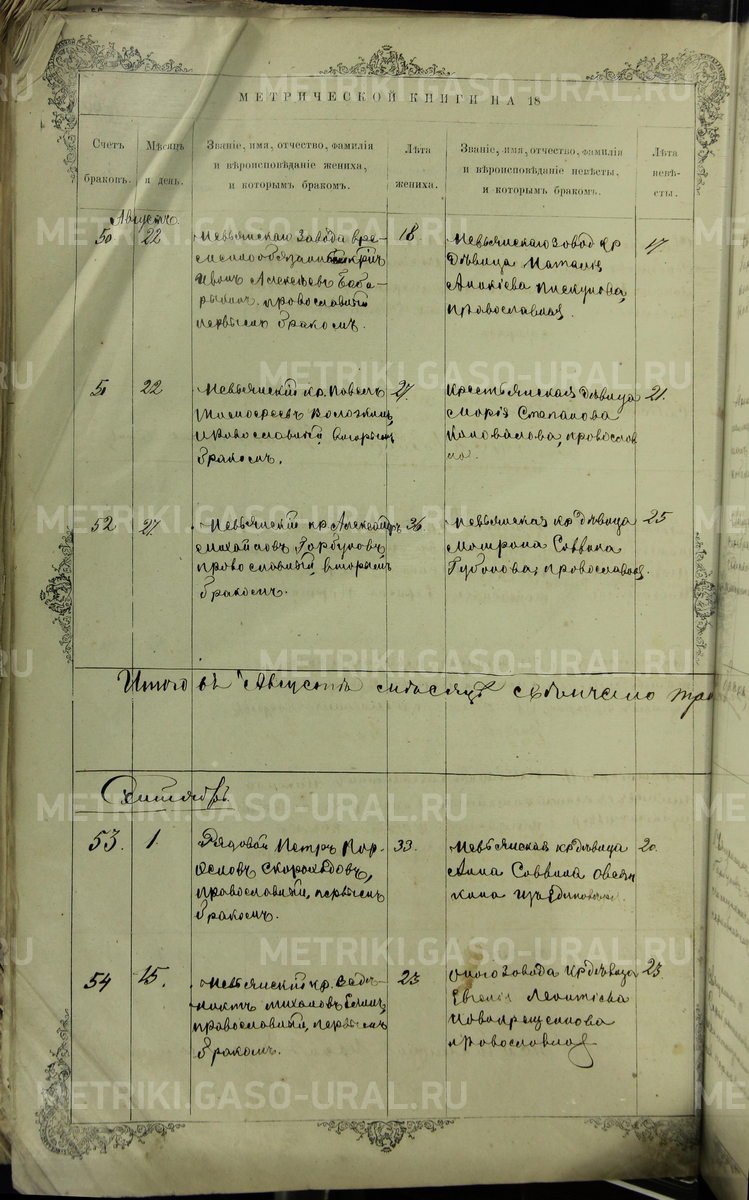 МЕТРИЧЕСКОЙ КНИГИ НА 18
Счетъ браковъ.
Мѣсяцъ и день.
Званіе, имя, отчество, фамилія и вѣроисповѣданіе жениха, и которымъ бракомъ.
Лѣта жениха.
Званіе, имя, отчество, фамилія и вѣроисповѣданіе невѣсты, и которымъ бракомъ.
Лѣта невѣсты.
Августъ.
50 22
Невьянскаго завода вре-
меннообязанный
Иванъ Алексѣевъ Баба-
рыкинъ, православный
первымъ бракомъ.
18
Невьянскаго завод кр
дѣвица Наталія
Аникіева Пискунова,
православная.
17
22
Невьянскій кр. Павелъ
Тимофеевъ
православный, вторымъ
бракомъ.
27.
Крестьянская дѣвица
Марія Степанова
Коновалова, православ
21.
52 27.
Невьянскій кр Александръ
Михайловъ Горбуновъ,
православный, вторымъ
бракомъ.
36.
Невьянская кр дѣвица
Матрона Саввина
Губонова, православная.
25
Итого въ Августѣ мѣсяцѣ
Сентябрь
53. 1.
Рядовой Петръ
Скороходовъ,
православный, первымъ
бракомъ.
33.
Невьянская кр дѣвица
Анна Саввина Овсян
кина
20.
54 15.
Невьянскій кр.
православный, первымъ
бракомъ.
23
Оного завода кр дѣвица
Евгенія Леонтіева
Новокрещенова
православная
23.
METRIKI.GASO-URAL.RU